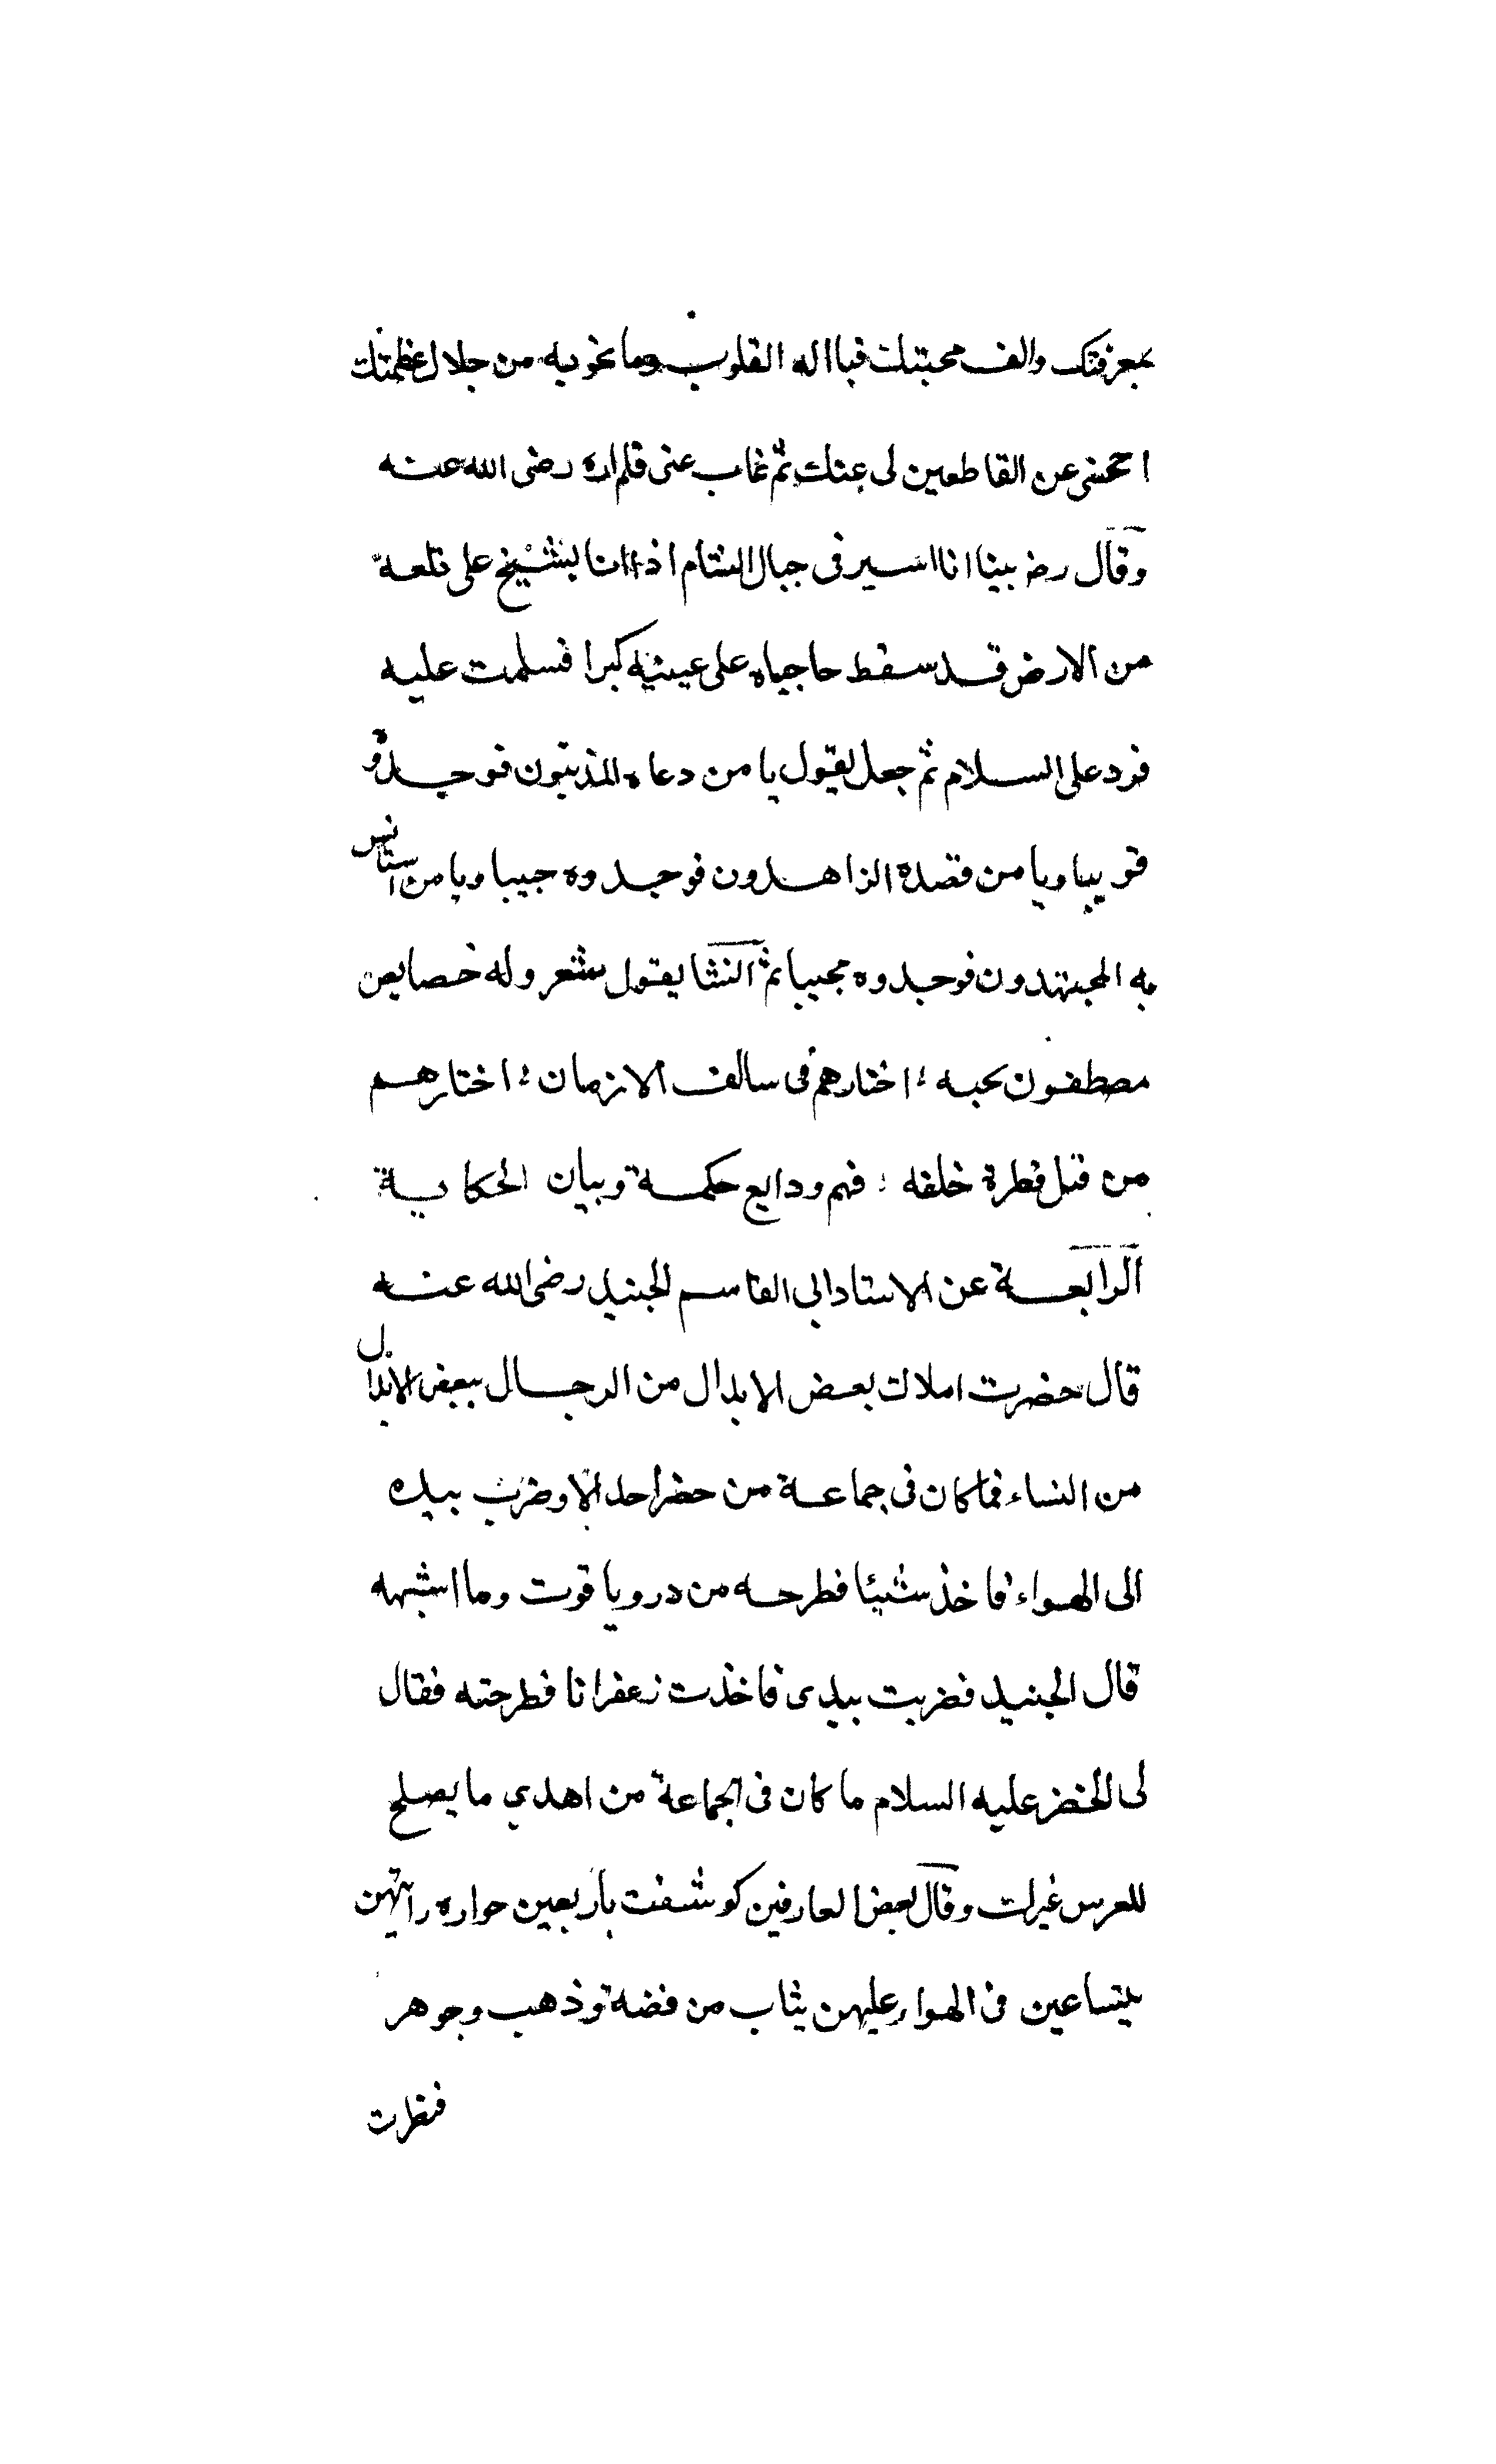 بمعرفتك والف محبتك فيا اله القلوب وما تحويه من جلال عظمتك
احمنى عن القاطعين لى عنك ثم غاب عنى فلم اره رضى الله عنه
وقال رض بينا انا اسير فى جبال الشام اذا انا بشيخ على تلعة
من الارض قد سقط حاجباه على عينيه كبرا فسلمت عليه
فرد على السلام ثم جعل يقول يا من دعاه المذنبون فوجدوه
قريبا ويا من قصده الزاهدون فوجدوه حبيبا ويا من استانس
به المجتهدون فوجدوه مجيبا ثم انشا يقول شعر وله خصايص
مصطفون بحبه ؛ اختارهم فى سالف الازمان ؛ اختارهم
من قبل فطرة خلقه ؛ فهم ودايع حكمة وبيان الحكاية
الرابعة عن الاستاد ابى القاسم الجنيد رضى الله عنه
قال حضرت املاك بعض الابدال من الرجال ببعض الابدال
من النساء فما كان فى جماعة من حضر احد الا وضرب بيده
الى الهواء فاخذ شيئا فطرحه من در وياقوت وما اشبهه
قال الجنيد فضربت بيدى فاخذت زعفرانا فطرحته فقال
لى الخضر عليه السلام ما كان فى الجماعة من اهدي ما يصلح
للعرس غيرك وقال بعض العارفين كوشفت باربعين حواره رايتهن
يتساعين فى الهواء عليهن ثياب من فضة وذهب وجوهر
فنظرت